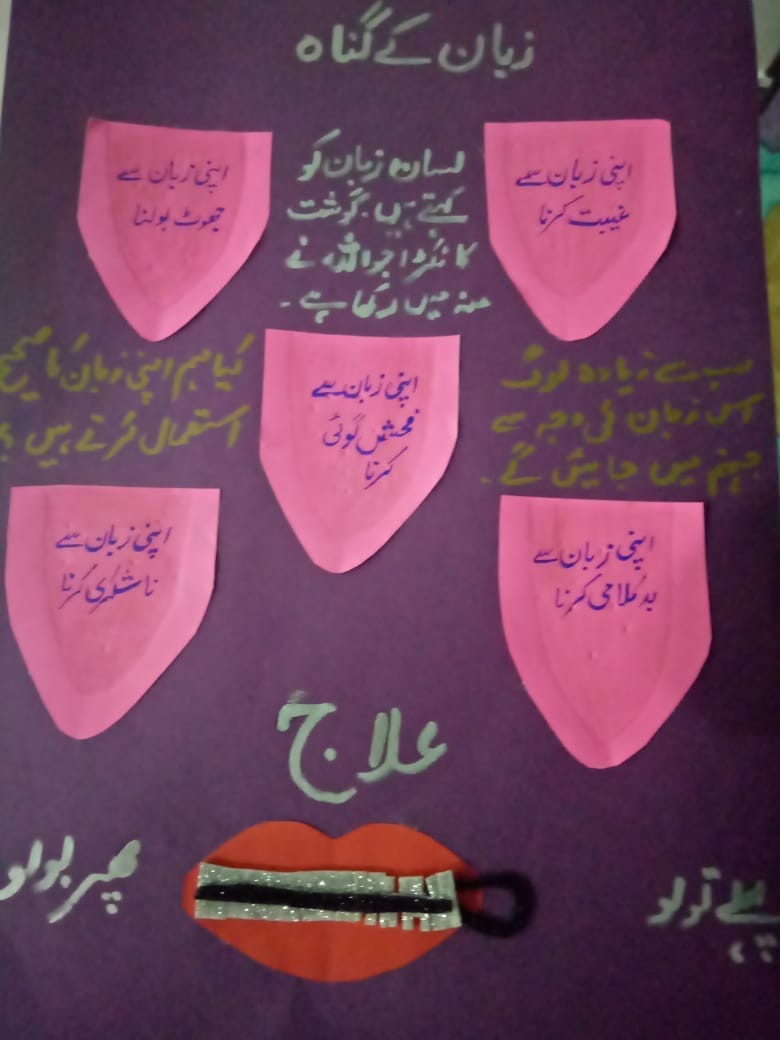 زبان کے گناہ
اپنی زبان سے
غیبت کرنا
لسان زبان کو
کہتے ہیں۔ گوشت
کا ٹکڑا جو اللہ نے
منہ میں رکھا ہے۔
اپنی زبان سے
جھوٹ بولنا
سب سے زیادہ لوگ
اس زبان کی وجہ سے
جہنم میں جایئں گے۔
اپنی زبان سے
فحش گوئی
کرنا
کیا ہم اپنی زبان کا صحیح
استعمال کرتے ہیں ؟
اپنی زبان سے
بدکلامی کرنا
اپنی زبان سے
ناشکری کرنا
علاج
پہلے تولو
پھر بولو